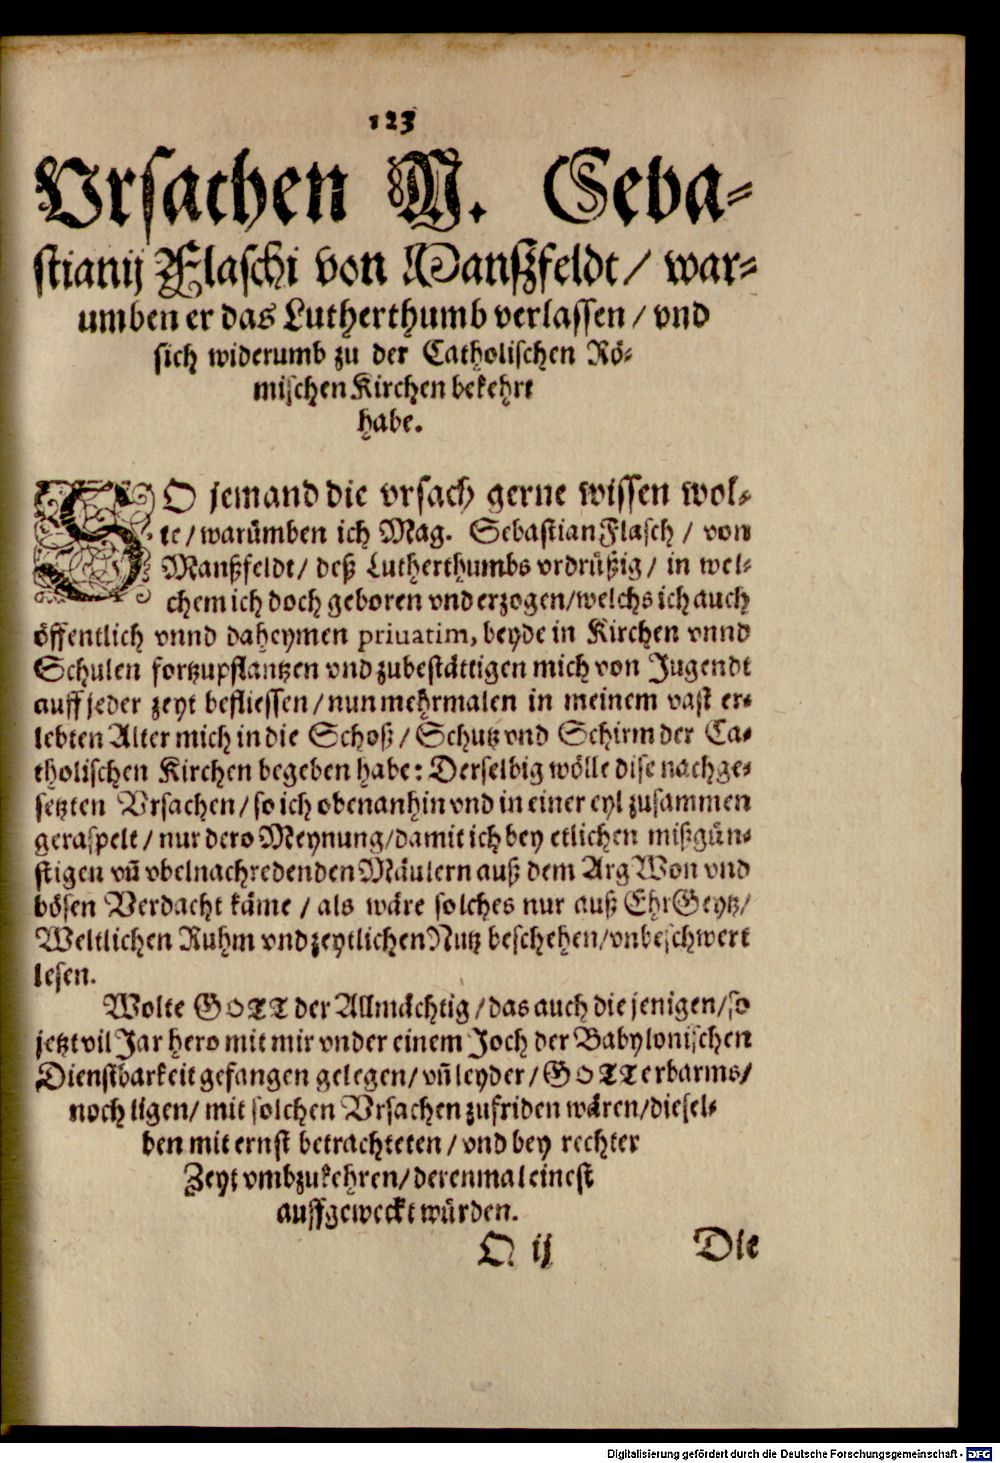 123
Vrsachen M. Seba-
stianij Flaschi von Mansßfeldt/ war-
umben er das Lutherthumb verlassen/ vnd
sich widerumb zu der Catholischen Rö-
mischen Kirchen bekehrt
habe.
SO jemand die vrsach gerne wissen wol-
te/ warümben ich Mag. Sebastian Flasch/ von
Manßfeldt/ deß Lutherthumbs vrdrüßig/ in wel-
chem ich doch geboren vnd erzogen/ welchs ich auch
öffentlich vnnd daheymen priuatim, beyde in Kirchen vnnd
Schulen fortzupflantzen vnd zubestättigen mich von Jugendt
auff jeder zeyt beflissen/ nun mehrmalen in meinem vast er-
lebten Alter mich in die Schoß/ Schutz vnd Schirm der Ca-
tholischen Kirchen begeben habe: Derselbig wölle dise nachge-
setzten Vrsachen/ so ich obenanhin vnd in einer eyl zusammen
geraspelt/ nur dero Meynung/ damit ich bey etlichen mißgün-
stigen vñ vbelnachredenden Mäulern auß dem ArgWon vnd
bösen Verdacht käme/ als wäre solches nur auß EhrGeytz/
Weltlichen Ruhm vnd zeytlichen Nutz beschehen/ vnbeschwert
lesen.
Wolte GOTT der Allmächtig/ das auch die jenigen/ so
jetzt vil Jar hero mit mir vnder einem Joch der Babylonischen
Dienstbarkeit gefangen gelegen/ vñ leyder/ GOTT erbarms/
noch ligen/ mit solchen Vrsachen zufriden wären/ diesel-
ben mit ernst betrachteten/ vnd bey rechter
Zeyt vmbzukehren/ derenmal einest
auffgeweckt würden.
Q ij Die
Digitalisierung gefördert durch die Deutsche Forschungsgemeinschaft - DFG